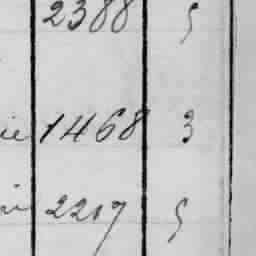 2388 5
ie 1468 3
2217 5